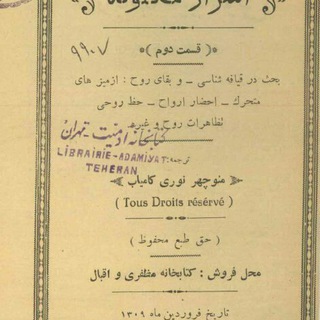 اسرار مکنونه
۹۹۰۷
( قسمت دوم )
بحث در قیافه شناسی ـ و بقای روح : ازمیز های
متحرک ـ احضار ارواح ـ خط روحی
تظاهرات روح و غیره
کتابخانه آدمیت ـ تهران
LIBRAIRIE-ADAMIYAT
TEHERAN
ترجمه:
منوچهر نوری کامیاب
( Tous Droits résérvé )
( حق طبع محفوظ )
محل فروش : کتابخانه مظفری و اقبال
تاریخ فروردین ماه ۱۳۰۹